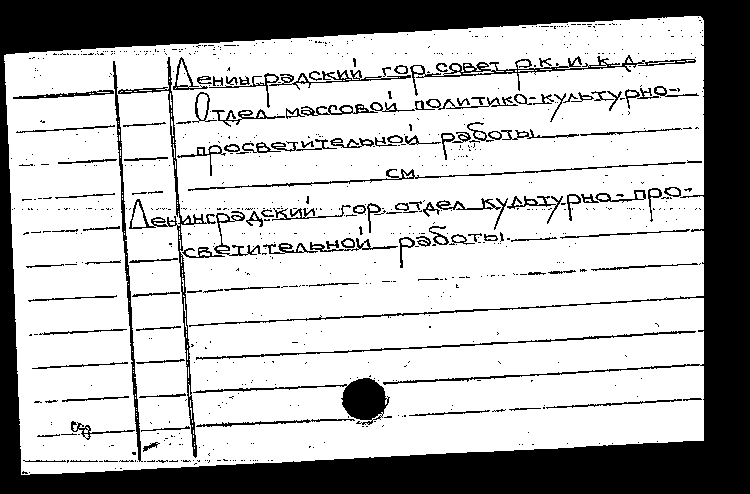 Ленинградский гор. совет р. к. и. к. д.
Отдел массовой политико-культурно-
просветительной работы.
см.
Ленинградский гор. отдел культурно-про-
светительной работы.